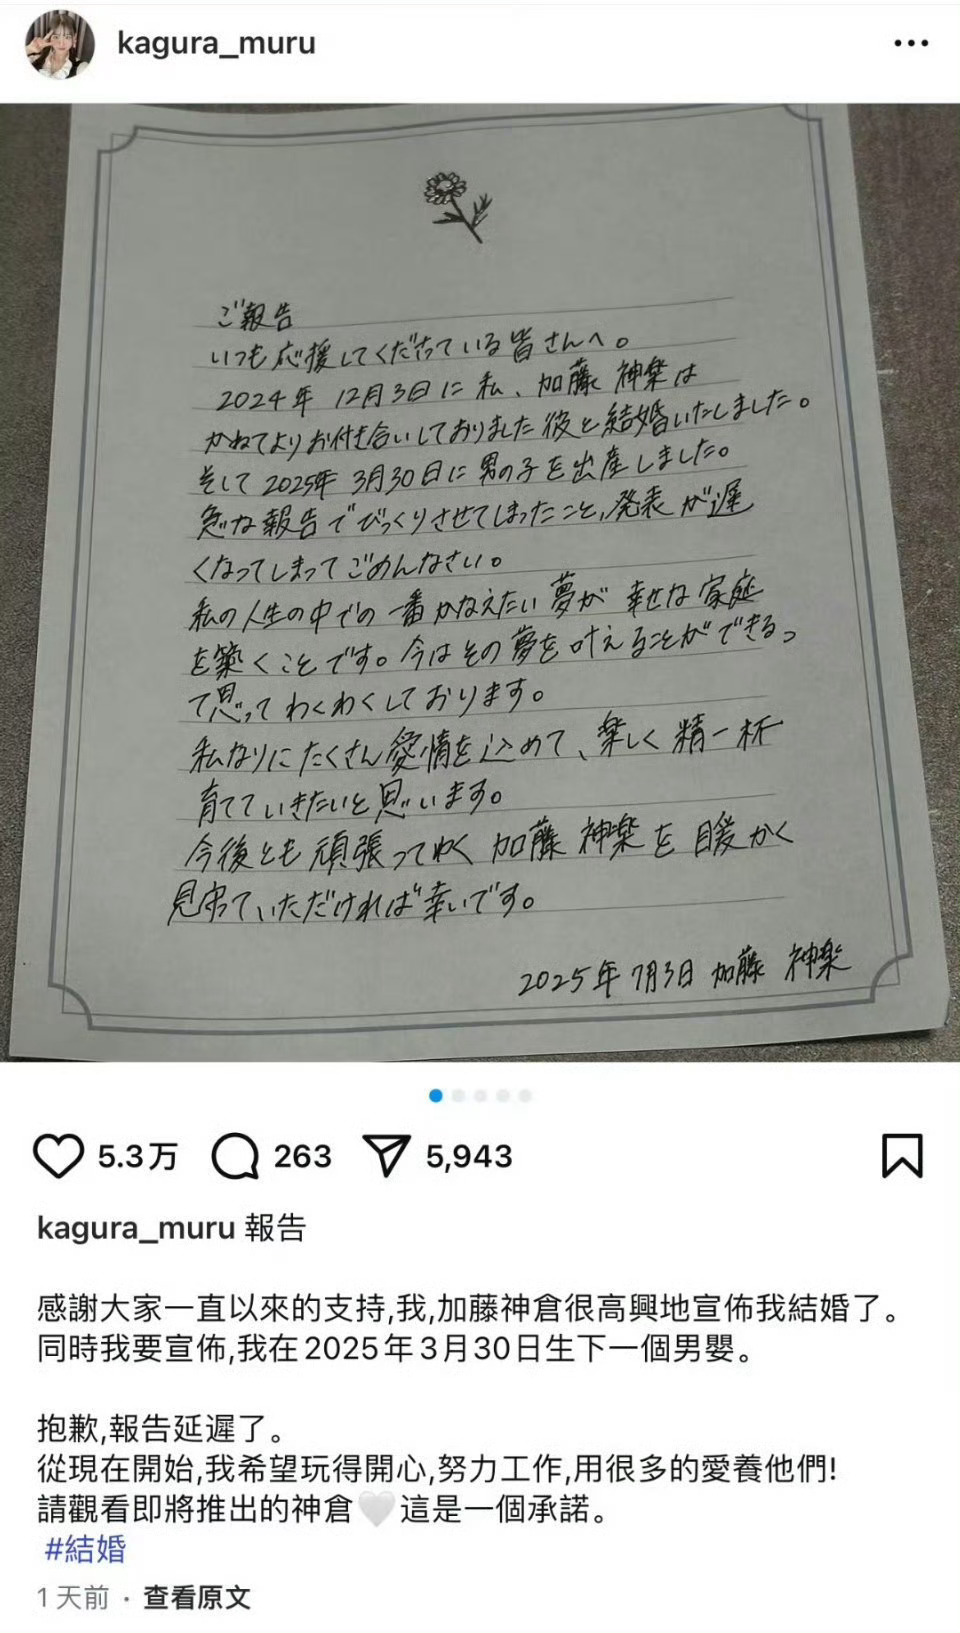 kagura_muru
ご報告
いつも応援してくださっている皆さんへ。
2024年 12月3日に私、加藤 神楽は
かねてよりお付き合いしておりました彼と結婚いたしました。
そして 2025年 3月30日に男の子を出産しました。
急な報告でびっくりさせてしまったこと、発表が遅
くなってしまってごめんなさい。
私の人生の中での一番かなえたい夢が 幸せな家庭
を築くことです。今はその夢を叶えることができるっ
て思ってわくわくしております。
私なりにたくさん愛情を込めて、楽しく精一杯
育てていきたいと思います。
今後とも頑張ってゆく 加藤 神楽を 暖かく
見守っていただければ幸いです。
2025年7月3日 加藤 神楽
5.3万 263 5,943
kagura_muru 報告
感謝大家一直以來的支持,我,加藤神倉很高興地宣佈我結婚了。
同時我要宣佈,我在2025年3月30日生下一個男嬰。
抱歉,報告延遲了。
從現在開始,我希望玩得開心,努力工作,用很多的愛養他們!
請觀看即將推出的神倉🤍這是一個承諾。
#結婚
1天前 · 查看原文